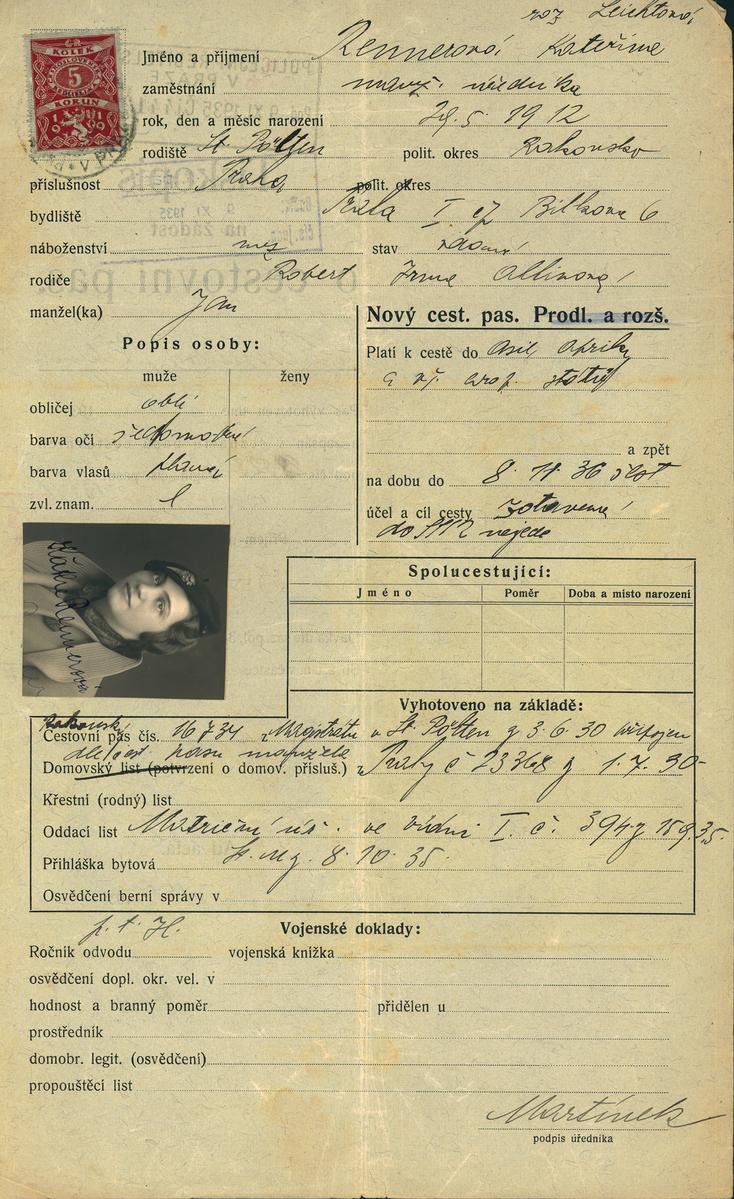 roz Leichtová
ČR
KOLEK
ČESKOSLOVENSKÁ
5
KORUN
1919
Jméno a příjmení Rennerova Kateřina
zaměstnání manž. úředníka
rok, den a měsíc narození 29. 5. 1912
rodiště St. Pölten polit. okres Rakousko
příslušnost Praha polit. okres
bydliště Praha I čj Bilkova 6
náboženství stav vdaná
rodiče Robert Irma
manžel(ka) Jan
Nový cest. pas. Prodl. a rozš.
Popis osoby:
muže ženy
obličej oblí
barva očí šedomodré
barva vlasů plavá
zvl. znam.
Platí k cestě do Asie, Afriky
a vš. evrop. států
a zpět
na dobu do 8. 11 36
účel a cíl cesty zotavení
do nejede
Käthe Rennerová
Spolucestující:
Jméno Poměr Doba a místo narození
Vyhotoveno na základě:
Rakouský
Cestovní pas čís. Magistrátu v St. Pölten z 3. 6. 30
dle cest. pasu manžela
Domovský list (potvrzení o domov. přísluš.) Prahy č 23368 z 1. 7. 30
Křestní (rodný) list
Oddací list Matriční úř. ve Vídni I. č. 394 z 15 9. 35.
Přihláška bytová 8. 10. 35.
Osvědčení berní správy v
Vojenské doklady:
Ročník odvodu vojenská knížka
osvědčení dopl. okr. vel. v
hodnost a branný poměr přidělen u
prostředník
domobr. legit. (osvědčení)
propouštěcí list
Martínek
podpis úředníka